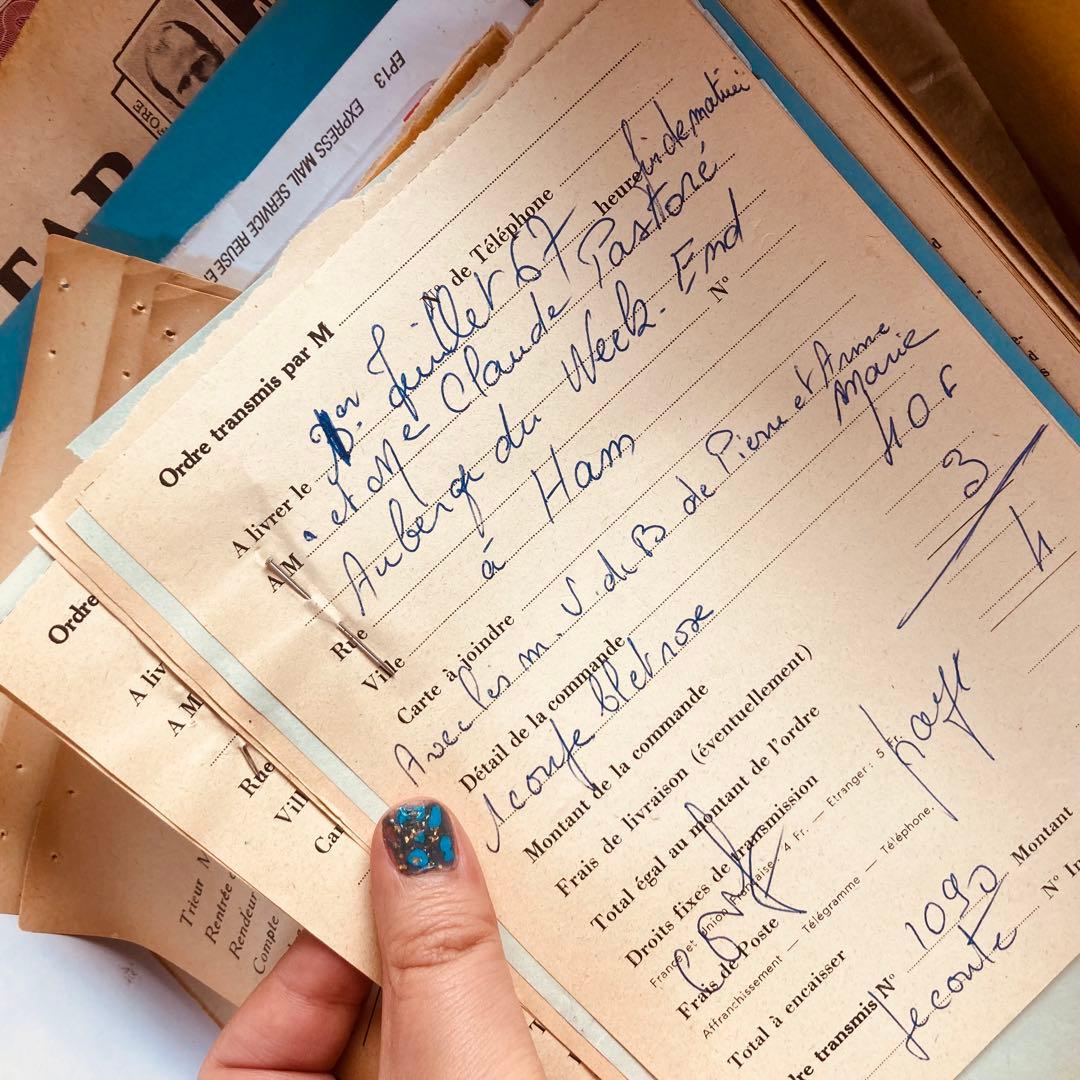 EP13 EXPRESS MAIL SERVICE REUSE E
FORE
Ordre transmis par M
N° de Téléphone
A livrer le 1er Juillet 67 heure fin de matinée
A M et Me Claude Pastoré
Rue Auberge du Week-End N°
Ville à Ham
Carte à joindre
Avec les m. v. de B de Pierre et Anne Marie
Détail de la commande
1 coupe blet rose
Montant de la commande 40 F
Frais de livraison (éventuellement) 3
Total égal au montant de l'ordre
Droits fixes de transmission 4
France et Union Française 4 Fr. — Etranger : 5 Fr.
Frais de Poste
Affranchissement — Télégramme — Téléphone.
Total à encaisser
payé
dre transmis N° 1090 Montant
Lecomte N° In
Ordre
A liv
A M
Rue
Vill
Car
Trieur M
Rentrée
Rendeur
Compte